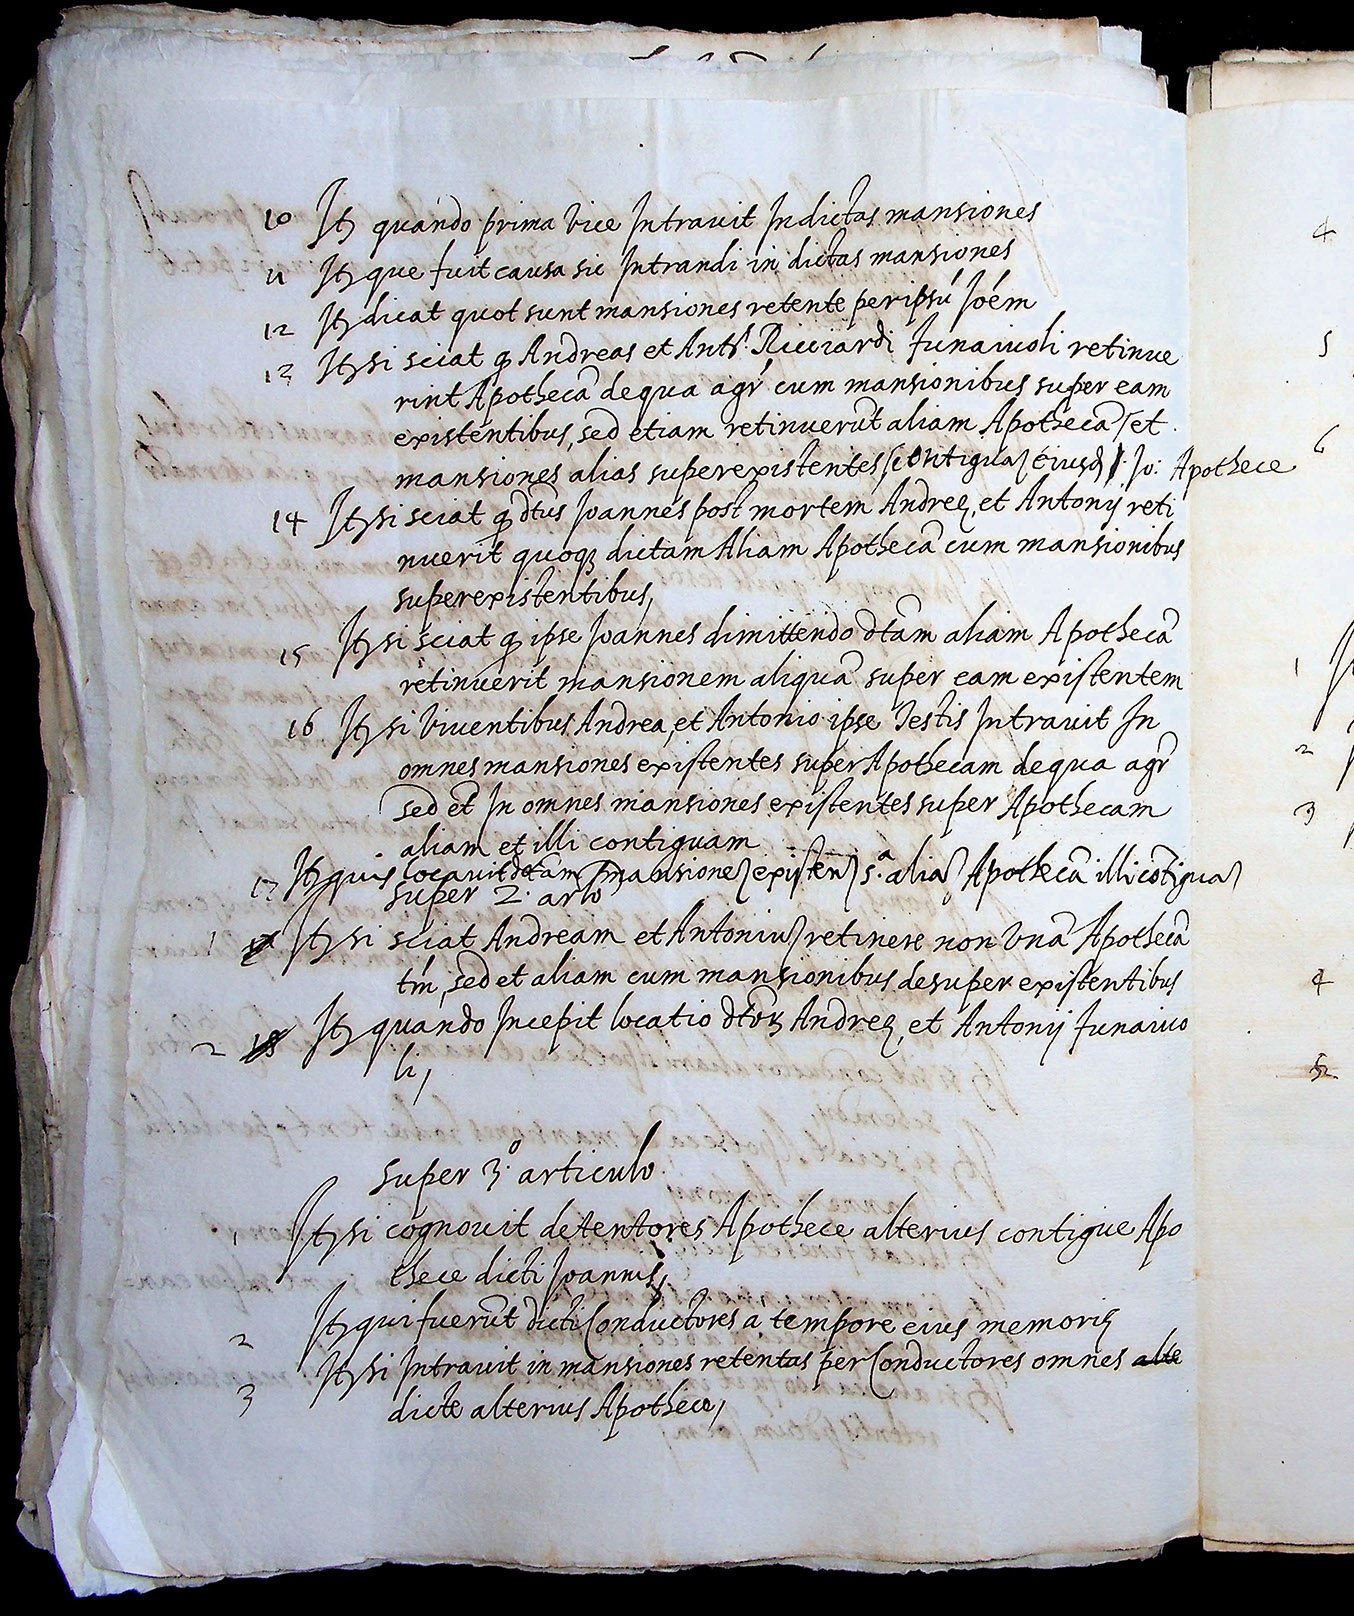 10 Itȝ quando prima vice Intravit In dictas mansiones
11 Itȝ que fuit causa sic Intrandi in dictas mansiones
12 Itȝ dicat quot sunt mansiones retente per ipsũ Joẽm
13 Itȝ si sciat ꝙ Andreas et Antˢ Ricciardi funaiuoli retinue
rint Apothecã de qua agr̃ cum mansionibus super eam
existentibus, sed etiam retinuerũt aliam Apothecã et
mansiones alias superexistentes, contiguas eiusd Jo: Apothece
14 Itȝ si sciat ꝙ dt̃us Joannes post mortem Andreę, et Antonij reti
nuerit quoqȝ dictam Aliam Apothecã cum mansionibus
superexistentibus,
15 Itȝ si sciat ꝙ ipse Joannes dimittendo dt̃am aliam Apothecã
retinuerit mansionem aliquã super eam existentem
16 Itȝ si viventibus Andrea, et Antonio ipse Testis Intravit In
omnes mansiones existentes super Apothecam de qua agr̃
sed et In omnes mansiones existentes super Apothecam
aliam et illi contiguam
17 Itȝ quis locavit dictam mansionem existen s.ᵃ aliã Apothecã illi cõtiguã
super 2.º arlo
1 Itȝ si sciat Andream et Antonium retinere non vnã Apothecã
tm̃, sed et aliam cum mansionibus desuper existentibus
2 18 Itȝ quando Incepit locatio dt̃orȝ Andreę, et Antonij funaiuo
li,
super 3.º articulo
1 Itȝ si cognovit detentores Apothece alterius contigue Apo
thece dicti Joannis,
2 Itȝ qui fuerũt dicti Conductores a tempore eius memorię
3 Itȝ si Intravit in mansiones retentas per Conductores omnes alte
dicte alterius Apothece,
4
5
6
1
2
3
4
5